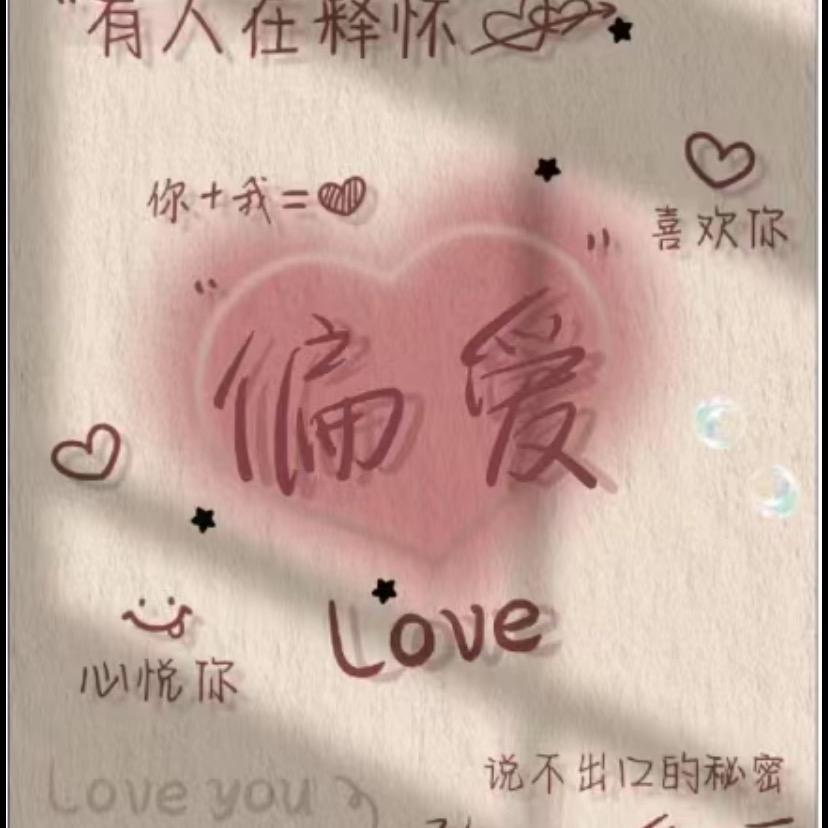 "有人在释怀
你+我=
喜欢你
"偏爱"
Love
心悦你
说不出口的秘密
Love you